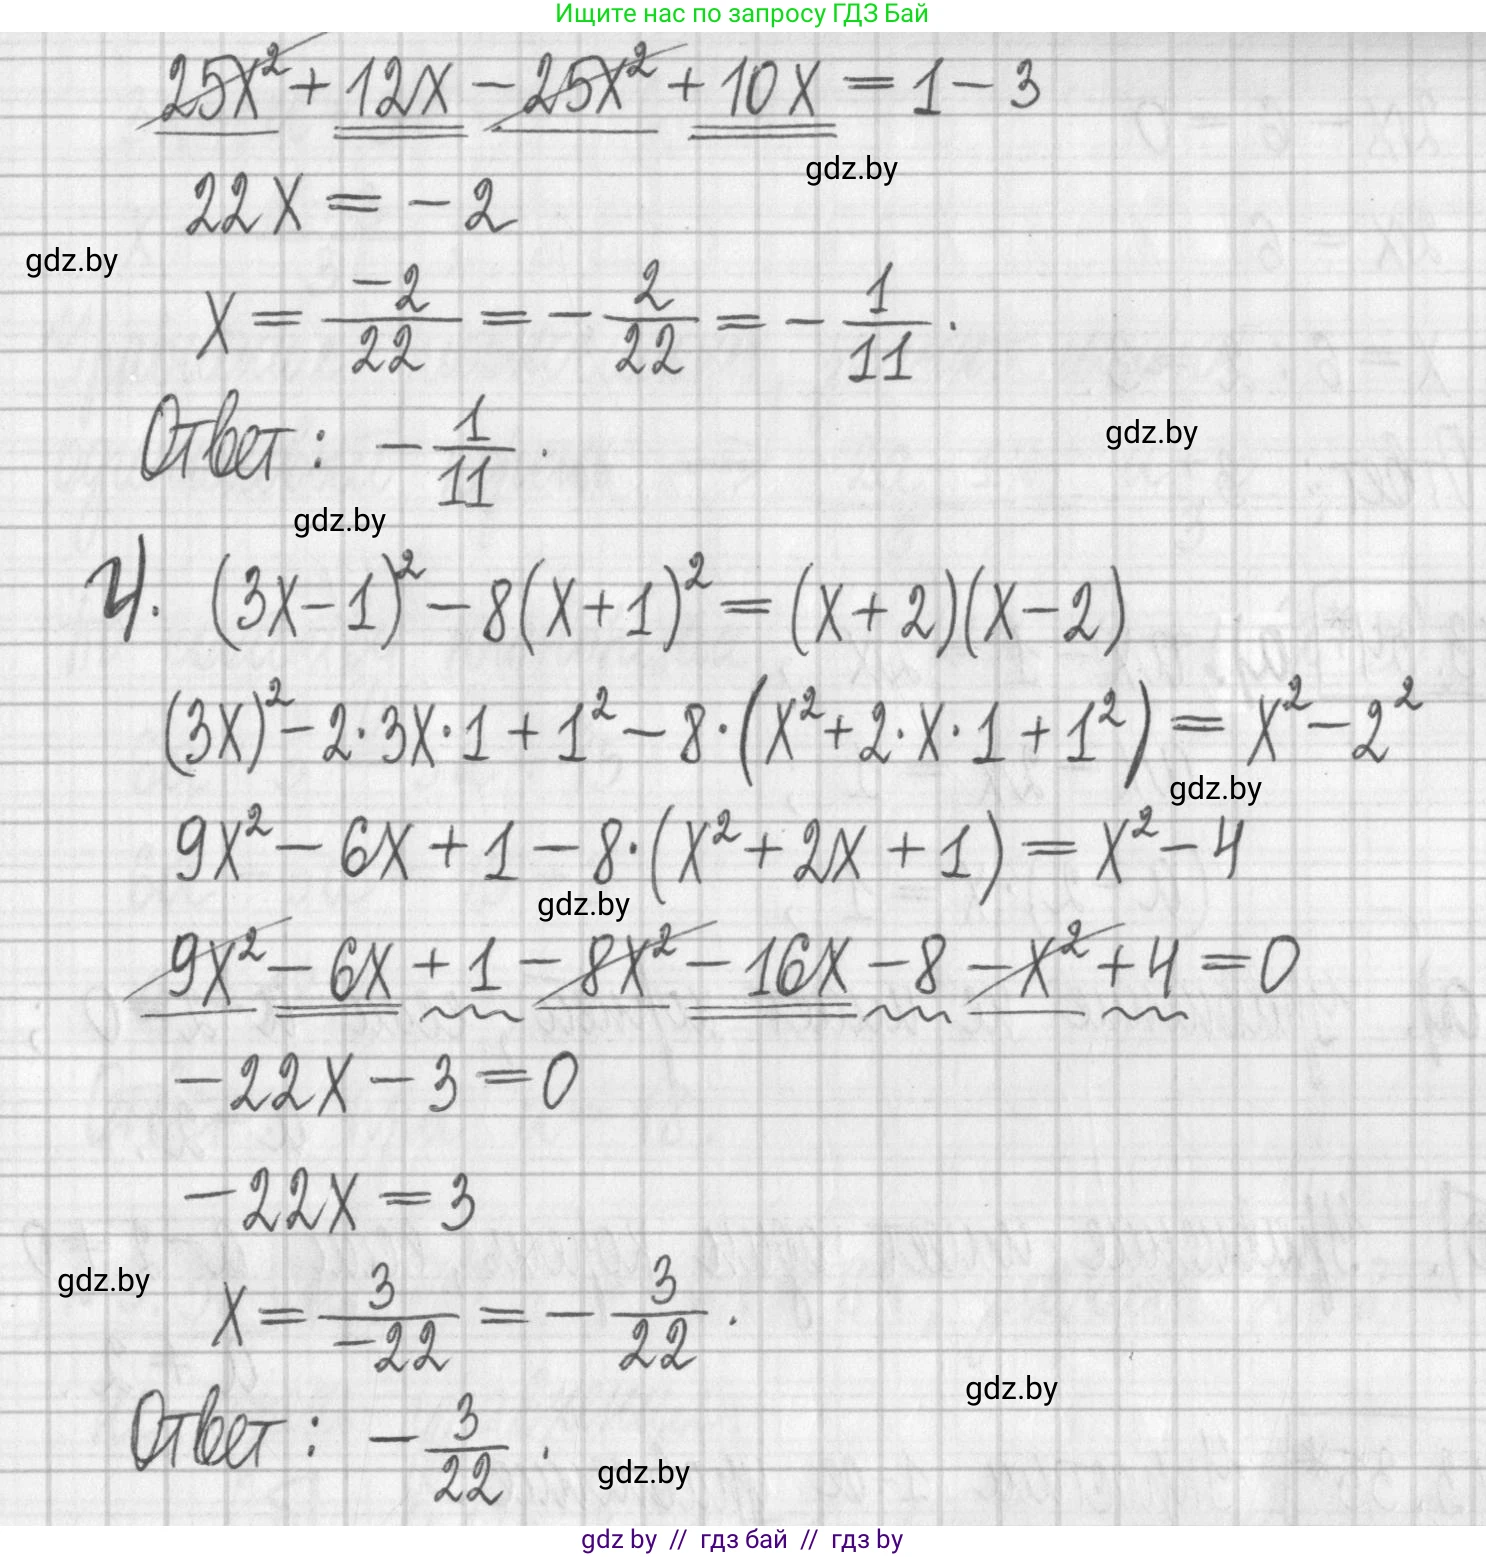 Ищите нас по запросу ГДЗ Бай
25x² + 12x − 25x² + 10x = 1 − 3
gdz.by
22x = −2
gdz.by
x = −2/22 = −2/22 = −1/11.
Ответ: −1/11.
gdz.by
gdz.by
4. (3x−1)² − 8(x+1)² = (x+2)(x−2)
(3x)² − 2·3x·1 + 1² − 8·(x² + 2·x·1 + 1²) = x² − 2²
gdz.by
9x² − 6x + 1 − 8·(x² + 2x + 1) = x² − 4
gdz.by
9x² − 6x + 1 − 8x² − 16x − 8 − x² + 4 = 0
−22x − 3 = 0
−22x = 3
gdz.by
x = 3/−22 = −3/22.
gdz.by
Ответ: −3/22.
gdz.by
gdz by // гдз бай // гдз by